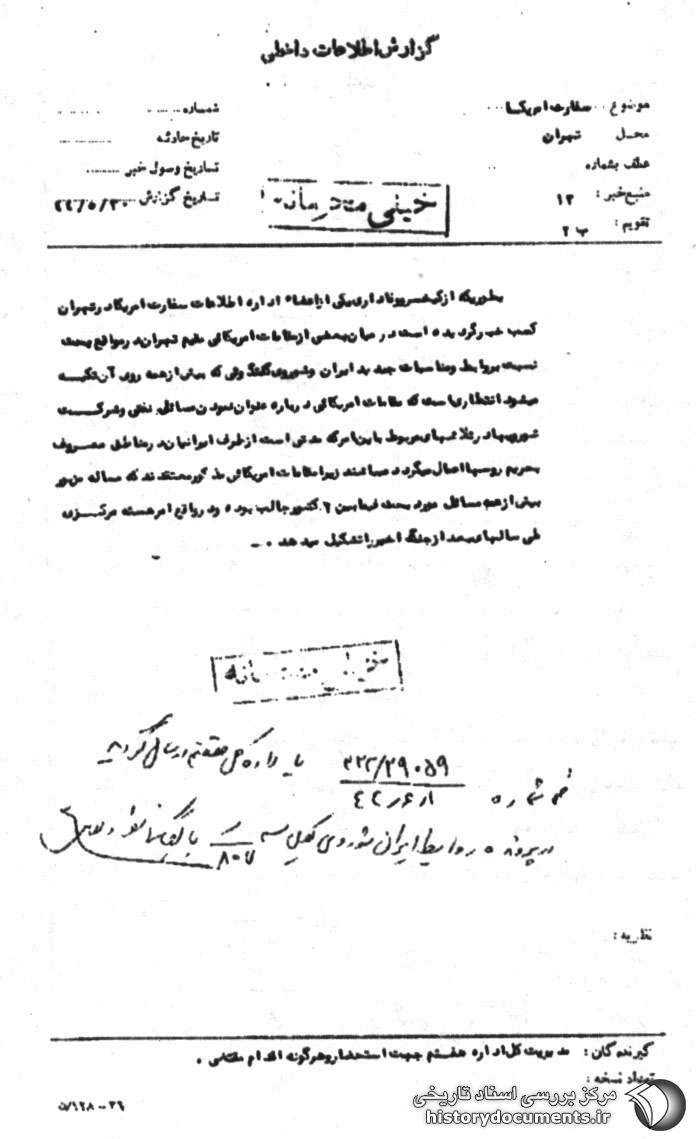 گزارش اطلاعات داخلی
موضوع سفارت امریکا
شماره
محل تهران
تاریخ حادثه
عطف بشماره
تاریخ وصول خبر
منبع خبر : ۱۲
تاریخ گزارش
تقویم : ب ۲
خیلی محرمانه
بطوریکه از کیخسرو وفاداری یکی از اعضاء اداره اطلاعات سفارت امریکا در تهران
کسب خبر گردیده است در میان بعضی از مقامات امریکائی مقیم تهران در مواقع بحث
نسبت بروابط ومناسبات جدید ایران وشوروی گفتگوئی که بیش از همه روی آن تکیه
میشود انتظاری است که مقامات امریکائی درباره عنوان نمودن مسائل نفتی وشرکت
شوروی در تلاشهای مربوط باین امر که مدتی است از طرف ایرانیان در مناطق معروف
بحریم روسها اعمال میگردد میباشند زیرا مقامات امریکائی مذکور معتقدند که مساله مزبور
بیش از همه مسائل مورد بحث فیمابین ۲ کشور جالب بوده ودر واقع امر هسته مرکزی
طی سالهای بعد از جنگ اخیر را تشکیل میدهد .
خیلی محرمانه
شماره ۳۲۲/۲۹۰۵۹ باداره کل هفتم ارسال گردید
در پرونده روابط ایران شوروی
نظریه :
گیرندگان : مدیریت کل اداره هفتم جهت استحضار وهرگونه اقدام مقتضی .
تعداد نسخه :
مرکز بررسی اسناد تاریخی
historydocuments.ir